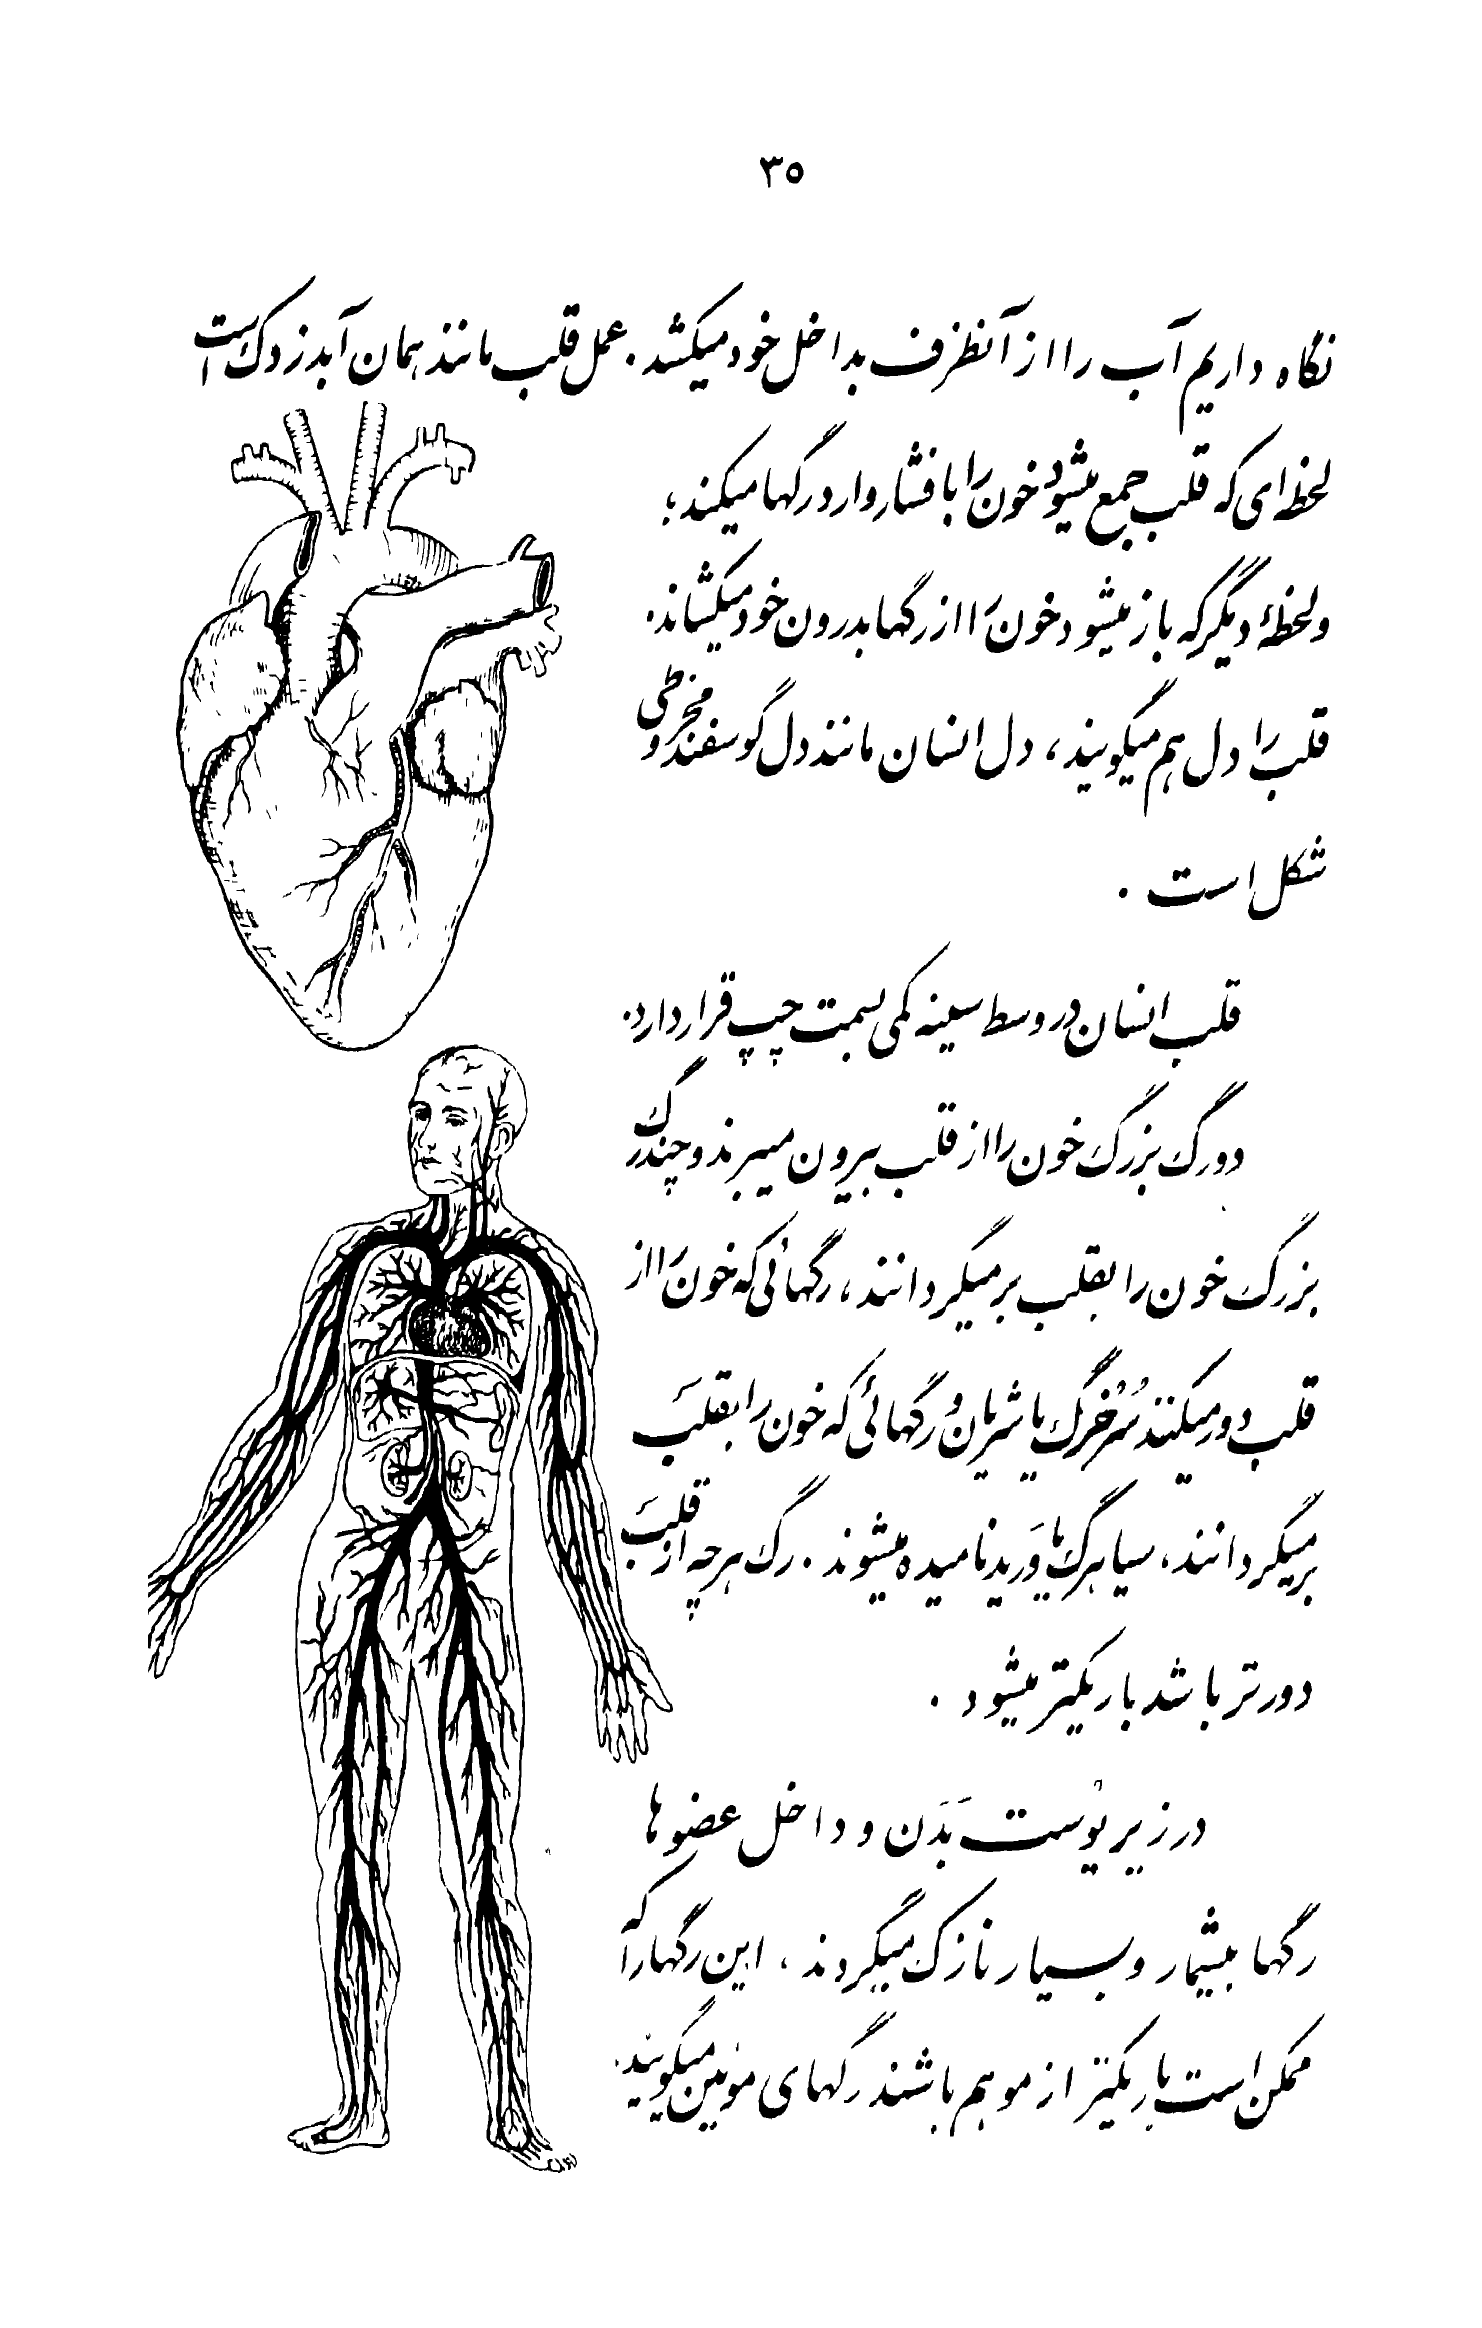 ۳۵
نگاه داریم آب را از آنظرف بداخل خود میکشد. عمل قلب مانند همان آبدزدک است
لحظه‌ای که قلب جمع میشود خون را با فشار وارد رگها میکند؛
و لحظهٔ دیگر که باز میشود خون را از رگها بدرون خود میکشاند.
قلب را دل هم میگویند، دل انسان مانند دل گوسفند و مخروطی
شکل است.
قلب انسان در وسط سینه کمی بسمت چپ قرار دارد.
دو رگ بزرگ خون را از قلب بیرون میبرند و چند رگ
بزرگ خون را بقلب بر میگردانند، رگهائی که خون را از
قلب دور میکنند سُرْخرگ یا شریان و رگهائی که خون را بقلب
برمیگردانند، سیاهرگ یا وَرید نامیده میشوند. رگ هر چه از قلب
دورتر باشد باریکتر میشود.
در زیر پوست بَدَن و داخل عضوها
رگها بیشمار و بسیار نازک میگردند، این رگها را که
ممکن است باریکتر از مو هم باشند رگهای مویین میگویند.